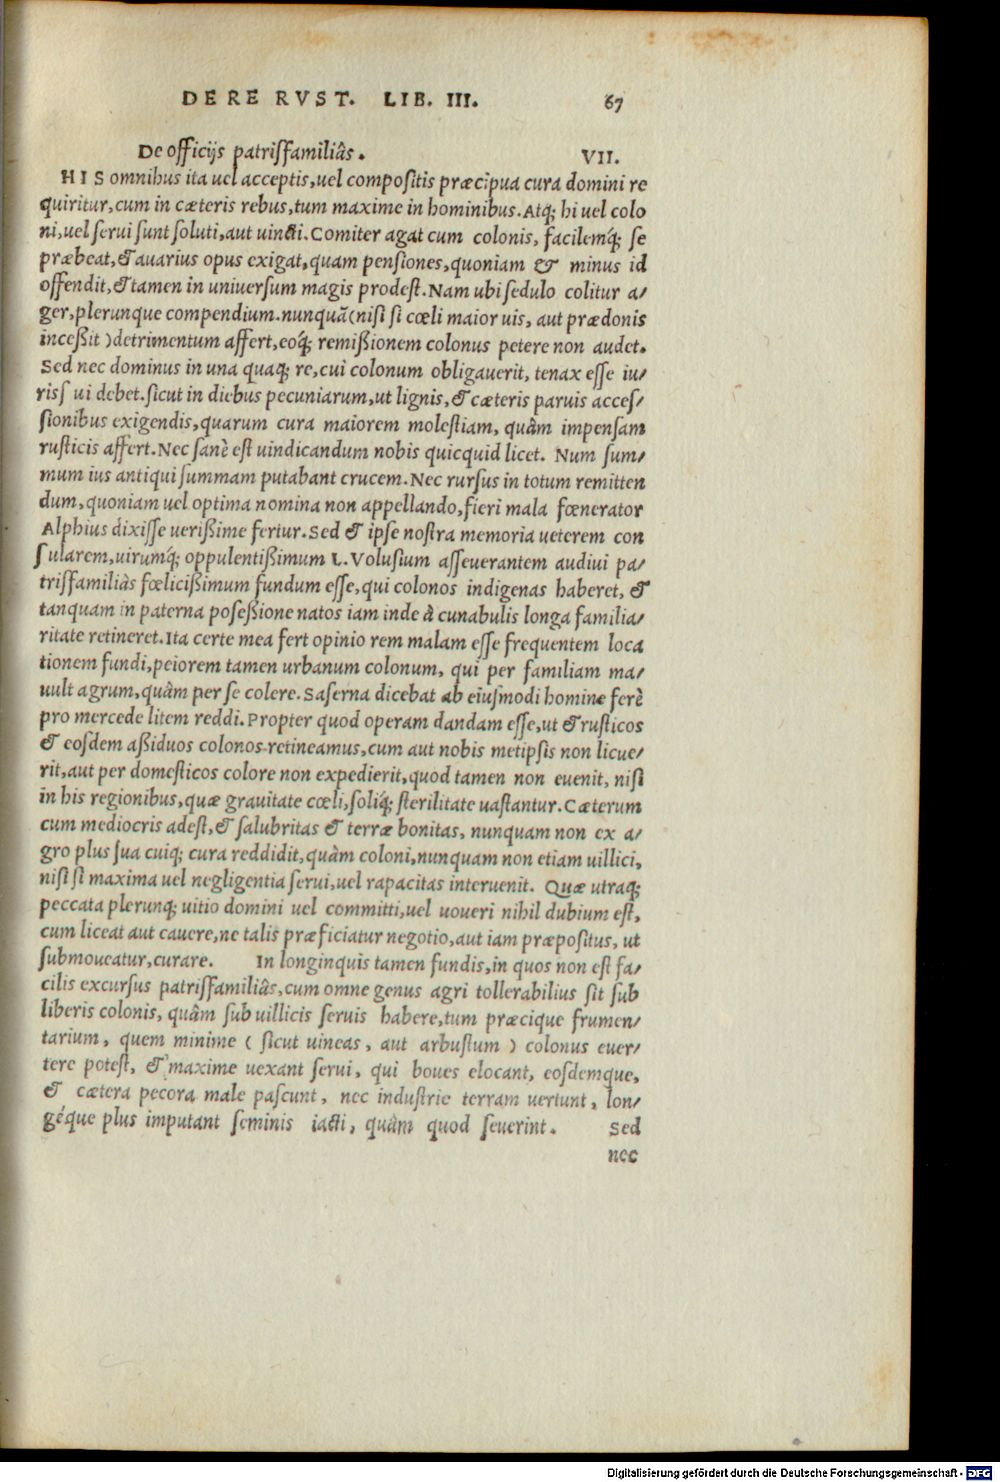 DE RE RVST. LIB. III. 67
De officijs patrisfamiliâs. VII.
HIS omnibus ita uel acceptis, uel compositis præcipua cura domini re
quiritur, cum in cæteris rebus, tum maxime in hominibus. Atq; hi uel colo
ni, uel serui sunt soluti, aut uincti. Comiter agat cum colonis, facilemq́; se
præbeat, & auarius opus exigat, quam pensiones, quoniam & minus id
offendit, & tamen in uniuersum magis prodest. Nam ubi sedulo colitur a/
ger, plerunque compendium. nunquã (nisi si cœli maior uis, aut prædonis
inceßit) detrimentum affert, eoq́; remißionem colonus petere non audet.
Sed nec dominus in una quaq; re, cui colonum obligauerit, tenax esse iu/
ris sui debet. sicut in diebus pecuniarum, ut lignis, & cæteris paruis acces/
sionibus exigendis, quarum cura maiorem molestiam, quâm impensam
rusticis affert. Nec sanè est uindicandum nobis quicquid licet. Num sum/
mum ius antiqui summam putabant crucem. Nec rursus in totum remitten
dum, quoniam uel optima nomina non appellando, fieri mala fœnerator
Alphius dixisse uerißime fertur. Sed & ipse nostra memoria ueterem con
sularem, uirumq́; oppulentißimum L. Volusium asseuerantem audiui pa/
trisfamiliàs fœlicißimum fundum esse, qui colonos indigenas haberet, &
tanquam in paterna poseßione natos iam inde à cunabulis longa familia/
ritate retineret. Ita certe mea fert opinio rem malam esse frequentem loca
tionem fundi, peiorem tamen urbanum colonum, qui per familiam ma/
uult agrum, quâm per se colere. Saserna dicebat ab eiusmodi homine ferè
pro mercede litem reddi. Propter quod operam dandam esse, ut & rusticos
& eosdem aßiduos colonos retineamus, cum aut nobis metipsis non licue/
rit, aut per domesticos colore non expedierit, quod tamen non euenit, nisi
in his regionibus, quæ grauitate cœli, soliq́; sterilitate uastantur. Cæterum
cum mediocris adest, & salubritas & terræ bonitas, nunquam non ex a/
gro plus sua cuiq; cura reddidit, quàm coloni, nunquam non etiam uillici,
nisi si maxima uel negligentia serui, uel rapacitas interuenit. Quæ utraq;
peccata plerunq; uitio domini uel committi, uel uoueri nihil dubium est,
cum liceat aut cauere, ne talis præficiatur negotio, aut iam præpositus, ut
submoueatur, curare. In longinquis tamen fundis, in quos non est fa/
cilis excursus patrisfamiliâs, cum omne genus agri tollerabilius sit sub
liberis colonis, quâm sub uillicis seruis habere, tum præcique frumen/
tarium, quem minime ( sicut uineas, aut arbustum ) colonus euer/
tere potest, & maxime uexant serui, qui boues elocant, eosdemque,
& cætera pecora male pascunt, nec industrie terram uertunt, lon/
géque plus imputant seminis iacti, quâm quod seuerint. Sed
nec
Digitalisierung gefördert durch die Deutsche Forschungsgemeinschaft - DFG